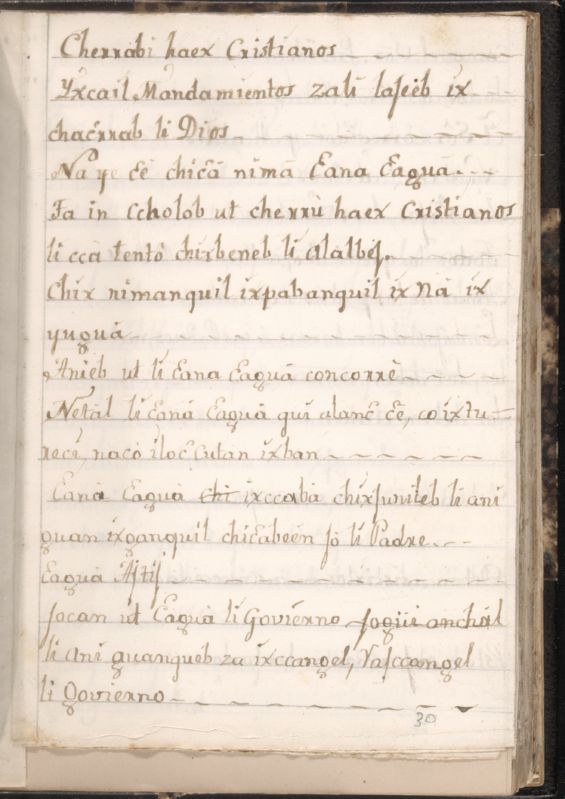 Cherrabi haex Cristianos
Yxcail Mandamientos zali laseèb ix
chacrrab li Dios
Na ye cê chicâ nimâ Cana Caguâ
Fa in Ccholob ut cherrù haex Cristianos
li ccà tentò chirbeneb li alalbej.
Chix nimanquil ixpabanquil ix Nà ix
yuguà
Anieb ut li Cana Caguâ concorrê
Netàl li Canà Caguâ qui alanc cê, co ixtu-
recì, nacò iloc cutan ixban
Canà Caguà ixccabà chixjunileb li ani
guan ixganquil chicabeèn jò li Padre
Caguâ Ajtij
Jocan ut Caguâ li Govierno
li Ani guanqueb za ixccangel, Vajccangel
li govierno
30